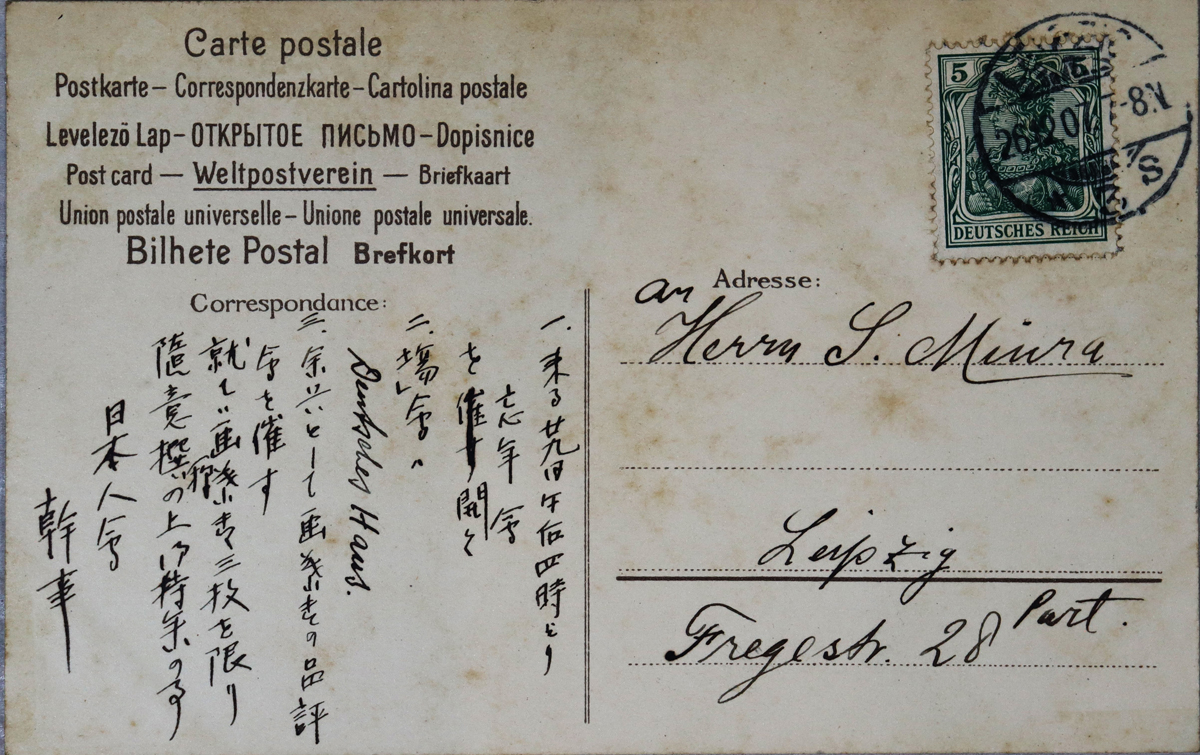 Carte postale
Postkarte – Correspondenzkarte – Cartolina postale
Levelezõ Lap – ОТКРЫТОЕ ПИСЬМО – Dopisnice
Post card — Weltpostverein — Briefkaart
Union postale universelle – Unione postale universale.
Bilhete Postal Brefkort
Correspondance:
一、来る廿九日午后四時より
忘年會
を催す開く
二、場會ハ
Deutsches Haus.
三、余興として画葉書の品評
會を催す
就ては画葉書三枚を限り
随意撰の上御持参の事
日本人會
幹事
5 5
DEUTSCHES REICH
26 12 07 -8 V
Adresse:
an
Herrn S. Miura
Leipzig
Fregestr. 28 Part.